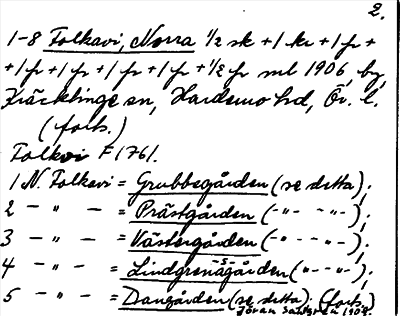 2.
1-8 Folkavi, Norra 1/2 sk + 1 kr + 1 fr +
+ 1 fr + 1 fr + 1 fr + 1 fr + 1/2 fr ml 1906, by,
Kräcklinge sn, Hardemo hd, Ör. l.
(forts.)
Folkvi F 1761.
1 N. Folkavi = Grubbegården (se detta);
2 — " — = Prästgården (—"— —"—);
3 — " — = Västergården (—"— —"—);
4 — " — = Lindgrensgården (—"— —"—);
5 — " — = Dangården (se detta). (forts.)
Göran Sahlgren 1908.